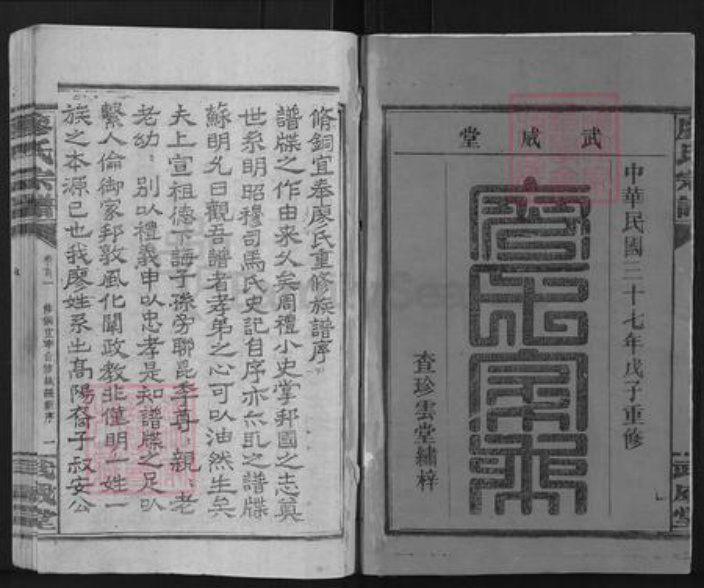 武威堂
中華民國三十七年戊子重修
查珍雲堂繡梓
廖氏宗譜
武威堂
脩銅宜奉廖氏重修族譜序
譜牒之作由來久矣周禮小史掌邦國之志奠
世系明昭穆司馬氏史記自序亦以之譜牒
蘇明允曰觀吾譜者孝弟之心可以油然生矣
夫上宣祖德下誨子孫旁聯昆季尊親老
老幼別以禮義申以忠孝是知譜牒之足以
繫人倫御家邦敦風化關政教非僅明一姓一
族之本源已也我廖姓系出高陽裔子叔安公
廖氏宗譜
卷首一
一
武威堂